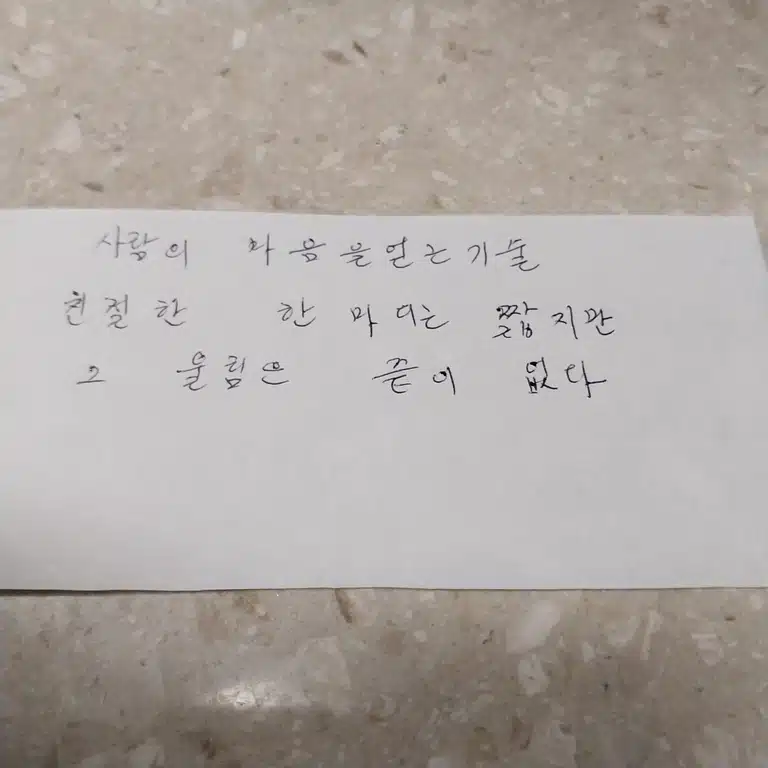 사람의 마음을얻는기술
친절한 한 마디는 짧지만
그 울림은 끝이 없다